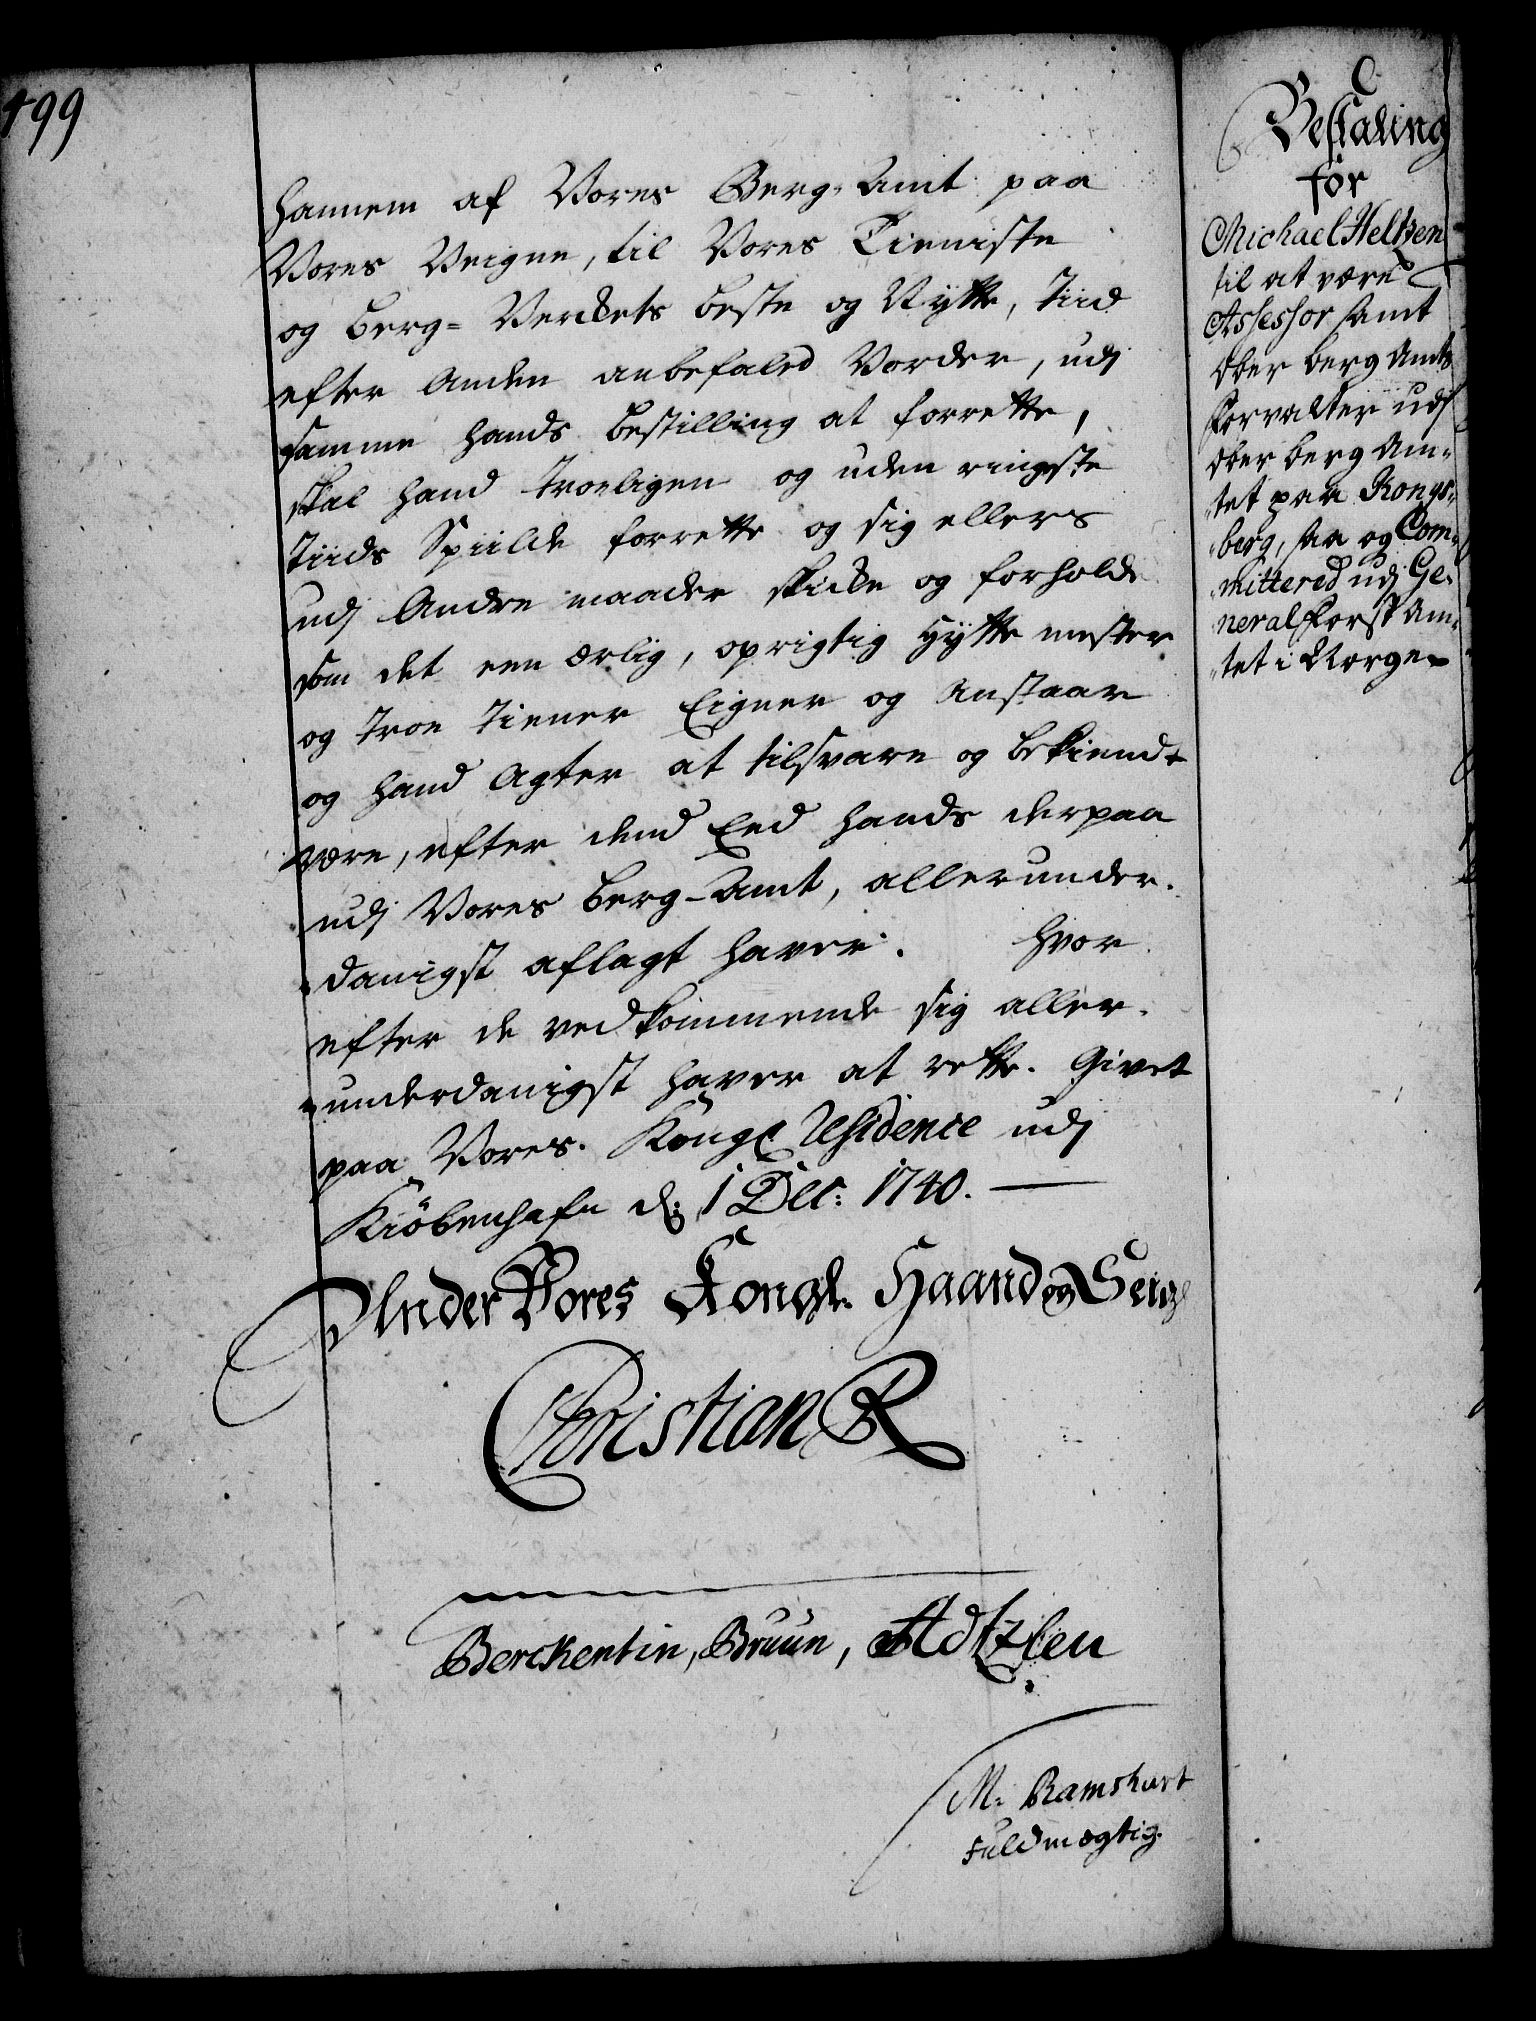 499
hannem af Vores Berg-Amt paa
Vores Veigne, til Vores Tieniste
og Berg-Verckets beste og Nytte, Tiid
efter Anden anbefaled Vorder, udj
samme hands bestilling at forrette,
skal hand troeligen og uden ringeste
Tiids Spiilde forrette og sig ellers
udj Andre maader skicke og forholde
som det een ærlig, oprigtig Hytte mester
og Troe Tiener Eigner og Anstaar
og hand Agter at tilsvare og bekiendt
være, efter dend Eed hands derpaa
udj Vores Berg-Amt, allerunder-
danigst aflagt haver. Hvor
efter de vedkommende sig aller-
underdanigst haver at rette. Givet
paa Vores Kongl Residence udj
Kiöbenhafn d: 1 Dec: 1740.
Under Vores Kongl. Haand og Seigl
Christian R
Berckentin, Bruun, Holtzlen
M. Ramshart
Fuldmægtig.
Bestaling
for
Michael Heltzen
til at være
Assessor samt
Ober Berg Amts
Forvalter udj
Ober Berg Am-
tet paa Kongs-
berg, saa og Com-
mittered udj Ge-
neral Forst Am-
tet i Norge